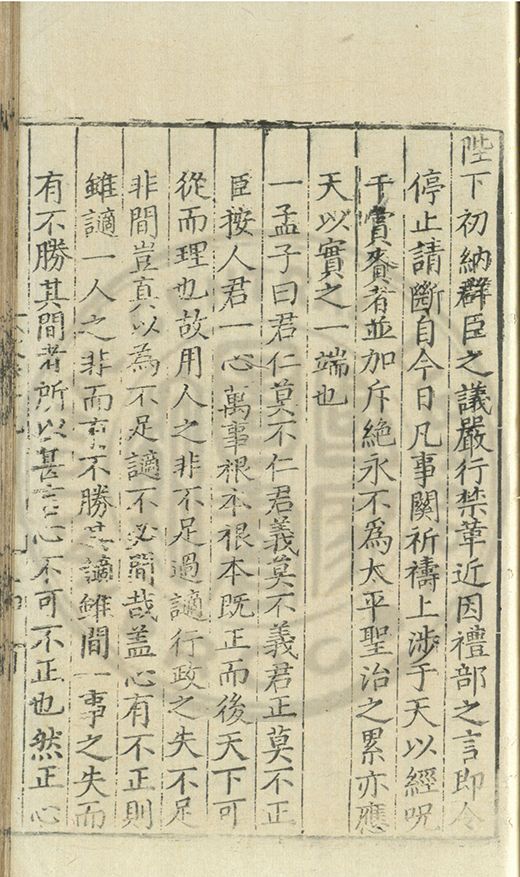 陛下初納羣臣之議嚴行禁革近因禮部之言即令
停止請斷自今日凡事關祈禱上涉于天以經呪
干賞賚者並加斥絶永不爲太平聖治之累亦應
天以實之一端也
一孟子曰君仁莫不仁君義莫不義君正莫不正
臣按人君一心萬事根本根本既正而後天下可
從而理也故用人之非不足過謫行政之失不足
非間豈真以為不足謫不必間哉盖心有不正則
雖謫一人之非而有不勝其謫雖間一事之失而
有不勝其間者所以甚言心不可不正也然正心